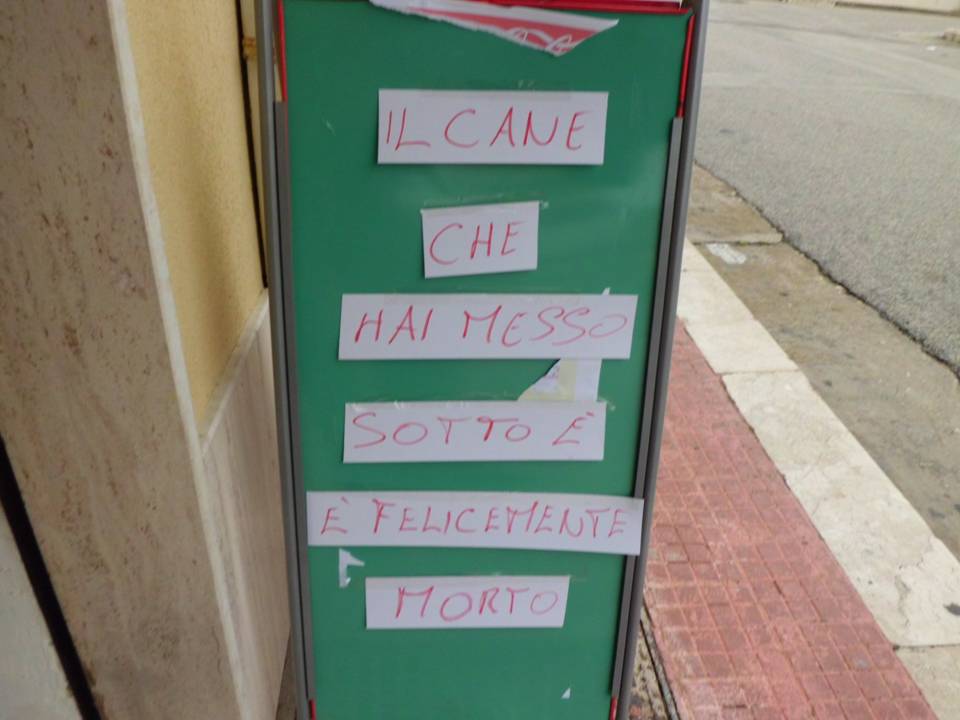 IL CANE
CHE
HAI MESSO
SOTTO È
È FELICEMENTE
MORTO